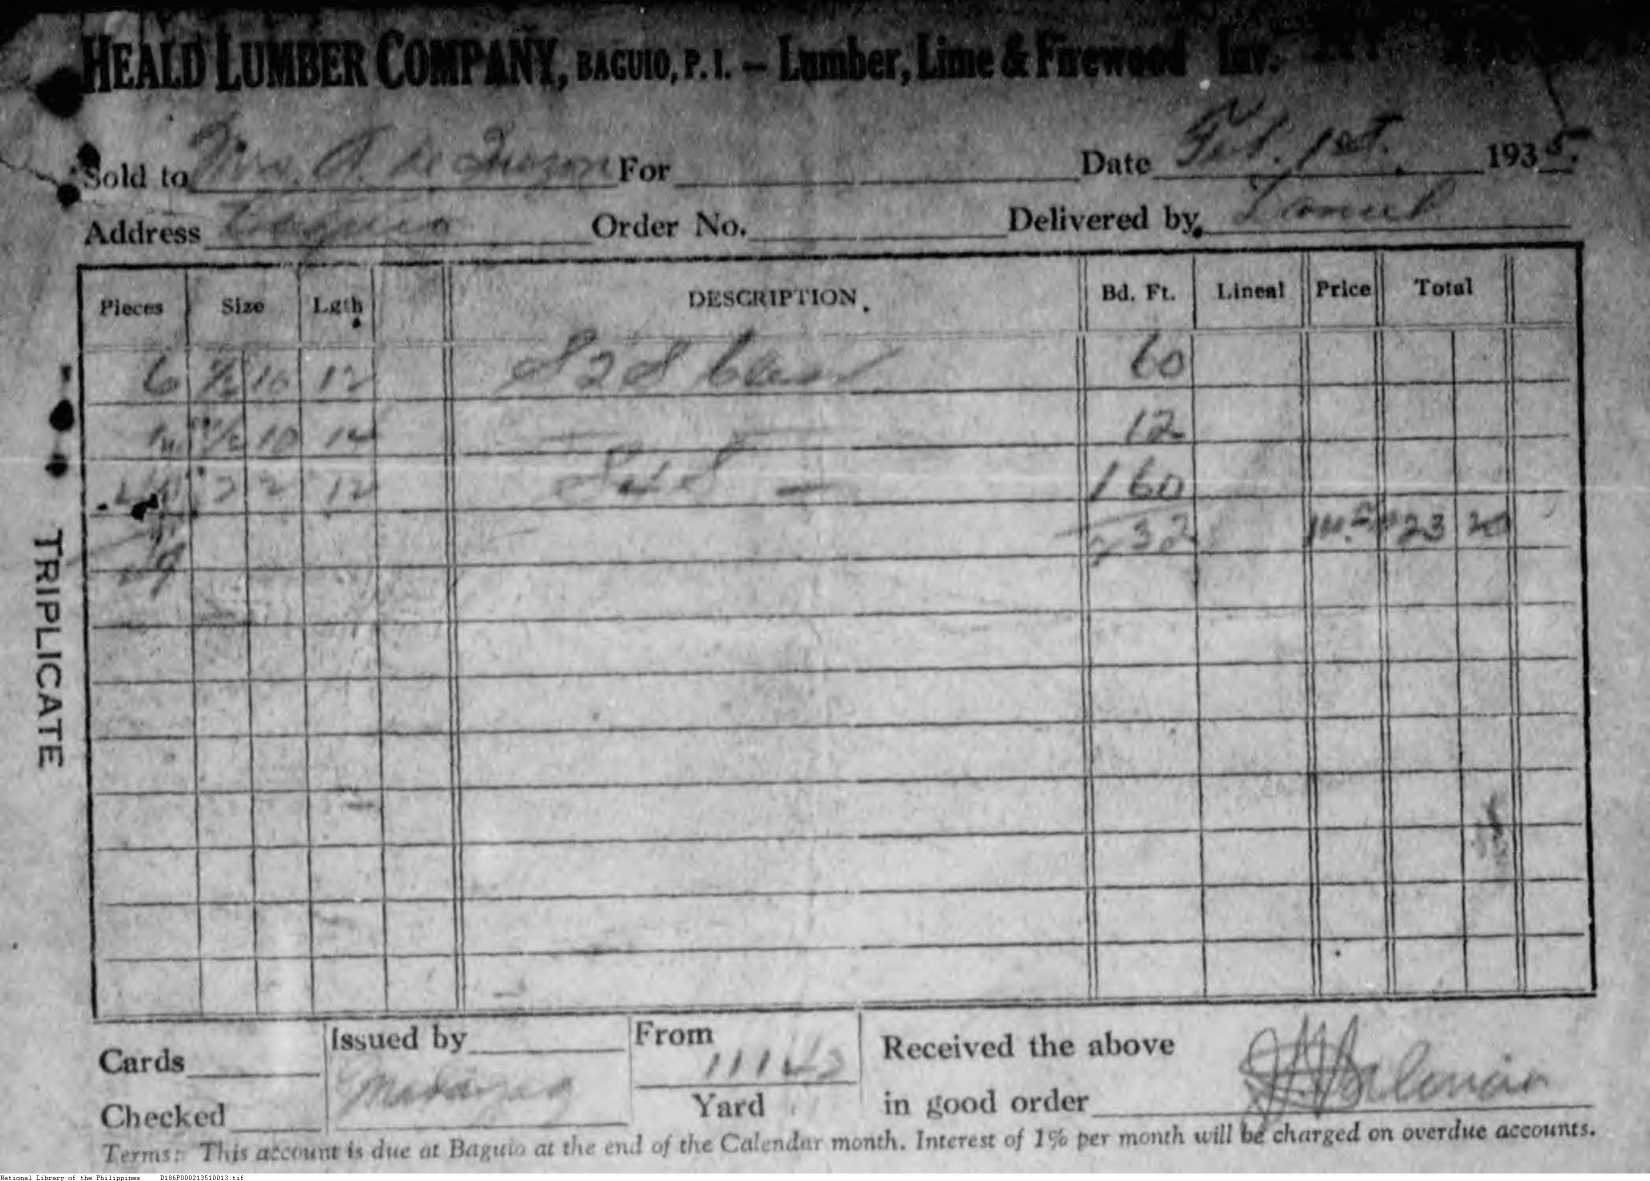 HEALD LUMBER COMPANY, BAGUIO, P. I. — Lumber, Lime & Firewood Inv.
Sold to Mrs. A. de Quezon For Date Feb. 1st. 1935.
Address Baguio Order No. Delivered by
Pieces Size Lgth DESCRIPTION. Bd. Ft. Lineal Price Total
6 1/2 10 12 S2S 60
1/2 10 12 12
2 2 12 S4S — 160
232 23 20
TRIPLICATE
Cards Issued by From 11142 Received the above
Checked Yard in good order
Terms: This account is due at Baguio at the end of the Calendar month. Interest of 1% per month will be charged on overdue accounts.
National Library of the Philippines D186P000213510013.tif